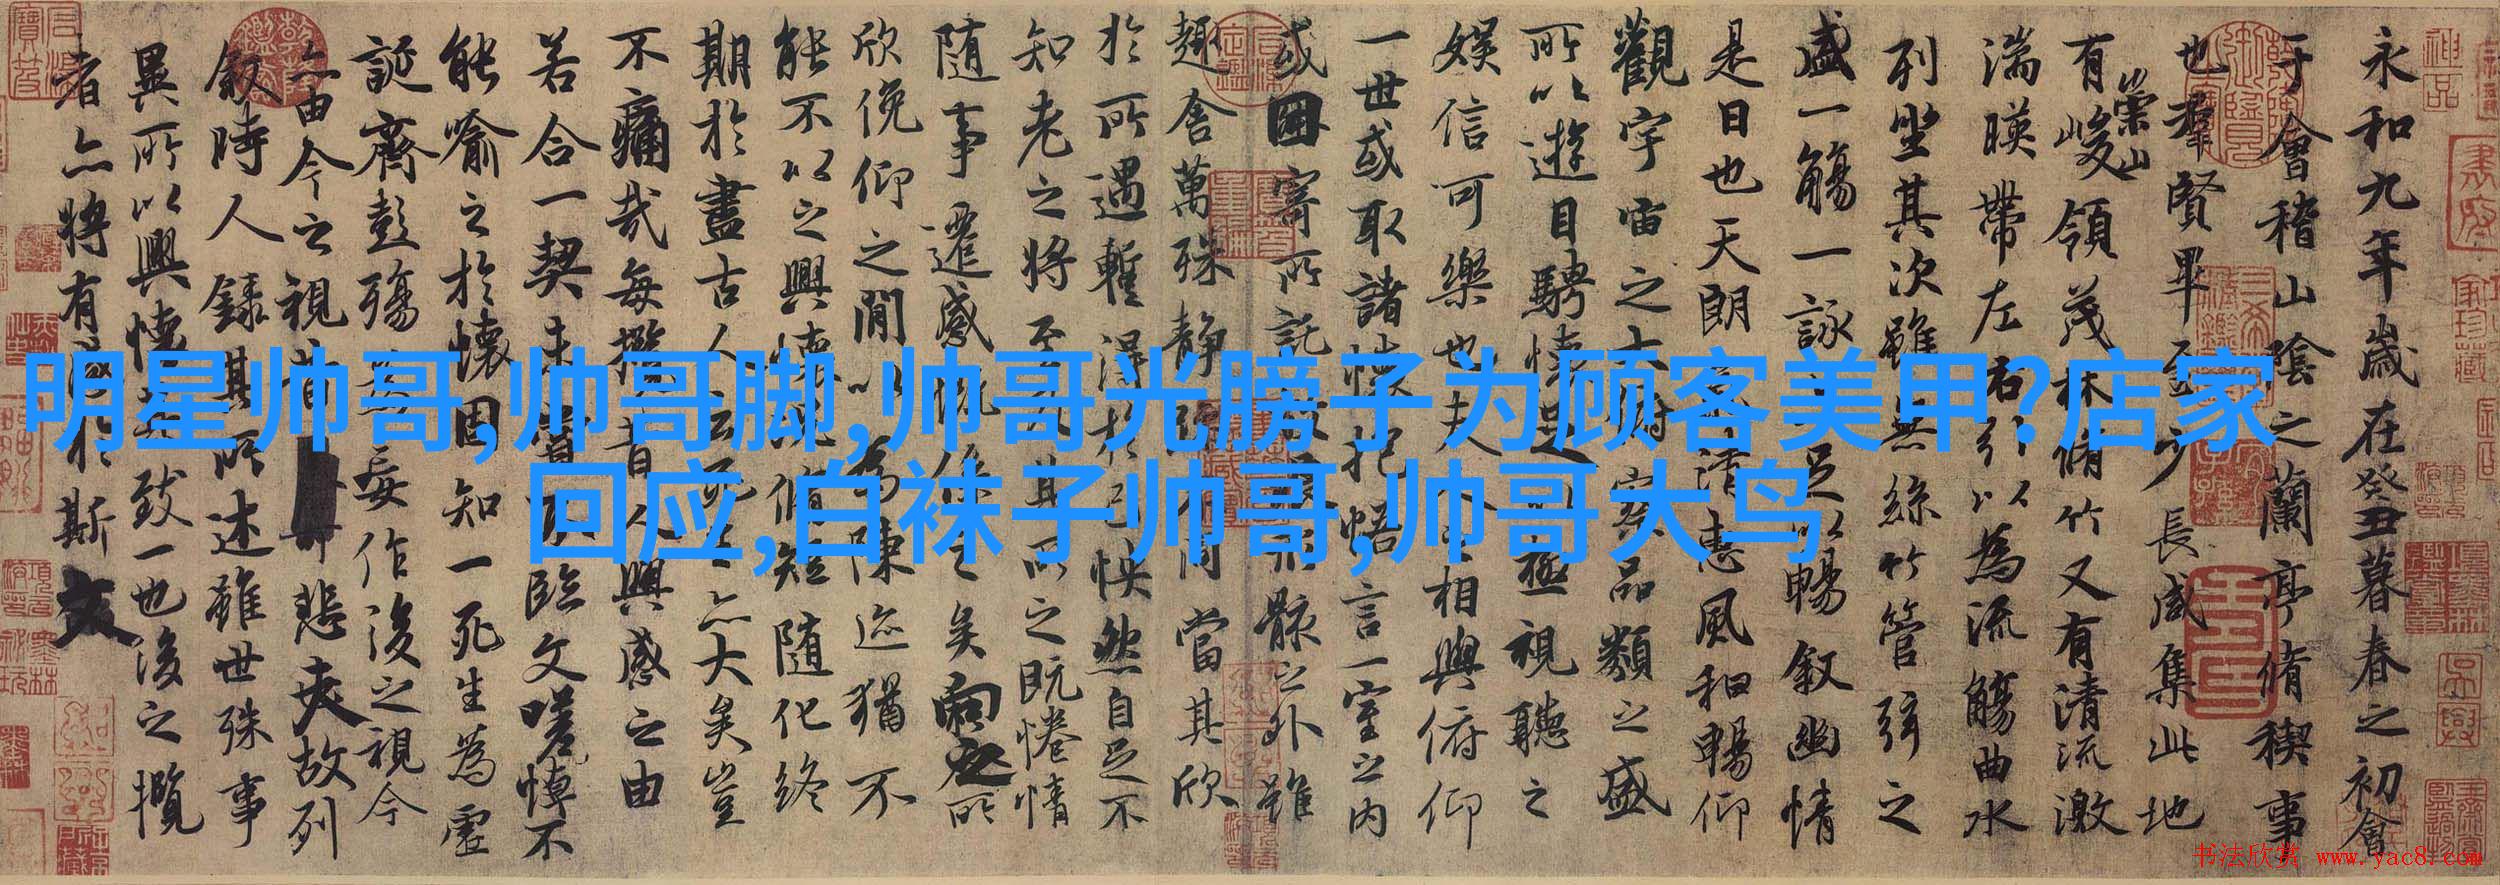 明星帅哥,帅哥脚,帅哥光膀子为顾客美甲?店家
回应,白袜子帅哥,帅哥大鸟
永和九年歲在癸丑暮春之初會
于會稽山陰之蘭亭脩稧事
也羣賢畢至少長咸集此地
有崇山峻領茂林脩竹又有清流激
湍暎帶左右引以為流觴曲水
列坐其次雖無絲竹管弦之
盛一觴一詠足以暢敘幽情
是日也天朗清惠風和暢仰
觀宇宙之大俯察品類之盛
所以遊目騁懷足以極視聽之
娛信可樂也夫人之相與俯仰
一世或取諸懷抱悟言一室之內
或因寄所託形骸之外雖
趣舍萬殊靜同當其欣
於所遇暫得於己怏然自足不
知老之將至其所之既惓情
隨事遷感慨係之矣向之所
欣俛仰之閒以為陳迹猶不
能不以之興懷況脩短隨化終
期於盡古人云死生亦大矣豈
不痛哉每攬昔人興感之由
若合一契未嘗不臨文嗟悼不
能喻之於懷固知一死生為虛
誕齊彭殤為妄作後之視今
亦由今之視昔悲夫故列
敘時人錄其所述雖世殊事
異所以興懷其致一也後之攬
者亦將有感於斯文
书法欣赏 www.yac8.com